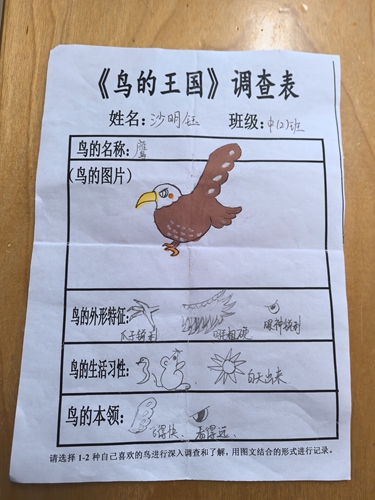 《鸟的王国》调查表
姓名：沙明钰 班级：中(2)班
鸟的名称：鹰
(鸟的图片)
鸟的外形特征：爪子锋利 粗硬 眼神锐利
鸟的生活习性： 白天出来
鸟的本领： 飞得快、看得远、
请选择 1-2 种自己喜欢的鸟进行深入调查和了解，用图文结合的形式进行记录。